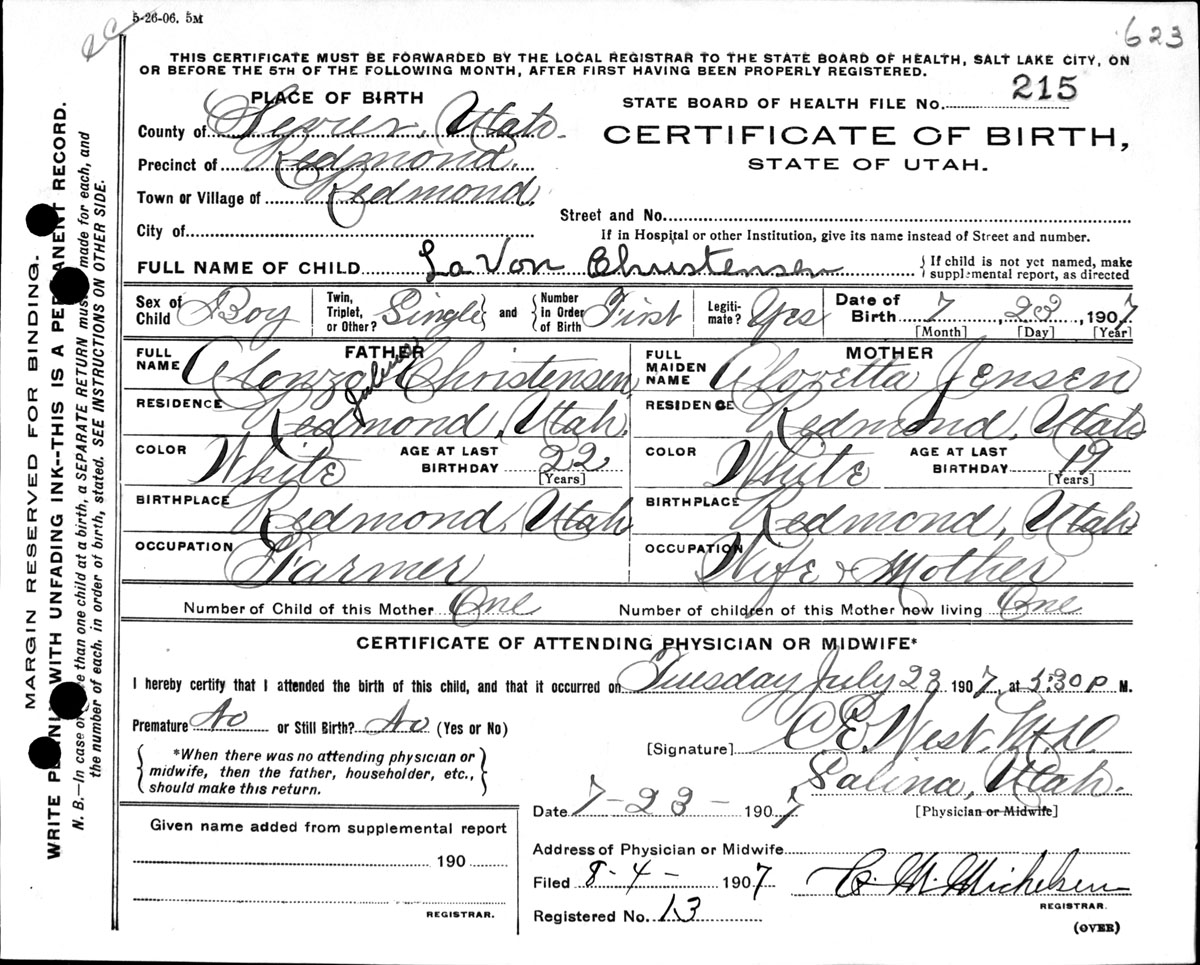 5-26-06. 5M
623
THIS CERTIFICATE MUST BE FORWARDED BY THE LOCAL REGISTRAR TO THE STATE BOARD OF HEALTH, SALT LAKE CITY, ON
OR BEFORE THE 5TH OF THE FOLLOWING MONTH, AFTER FIRST HAVING BEEN PROPERLY REGISTERED.
PLACE OF BIRTH
STATE BOARD OF HEALTH FILE No. 215
County of Sevier, Utah.
CERTIFICATE OF BIRTH,
Precinct of Redmond.
STATE OF UTAH.
Town or Village of Redmond.
Street and No.
City of
If in Hospital or other Institution, give its name instead of Street and number.
FULL NAME OF CHILD LaVon Christensen { If child is not yet named, make
supplemental report, as directed
Sex of Child Boy Twin, Triplet, or Other? Single } and { Number in Order of Birth First Legiti-mate? Yes Date of Birth 7, 23, 1907
[Month] [Day] [Year]
FATHER
FULL NAME Alonzo Christensen
RESIDENCE Redmond, Utah.
COLOR White AGE AT LAST BIRTHDAY 22
[Years]
BIRTHPLACE Redmond, Utah
OCCUPATION Farmer
MOTHER
FULL MAIDEN NAME Jensen
RESIDENCE Redmond, Utah
COLOR White AGE AT LAST BIRTHDAY 19
[Years]
BIRTHPLACE Redmond, Utah
OCCUPATION Wife & Mother
Number of Child of this Mother One Number of children of this Mother now living One
CERTIFICATE OF ATTENDING PHYSICIAN OR MIDWIFE*
I hereby certify that I attended the birth of this child, and that it occurred on Tuesday July 23 1907, at 5:30 P M.
Premature No or Still Birth? No (Yes or No)
[Signature] C. E. West, M.D.
Salina, Utah.
[Physician or Midwife]
*When there was no attending physician or
midwife, then the father, householder, etc.,
should make this return.
Date 7-23- 1907
Given name added from supplemental report
190
REGISTRAR.
Address of Physician or Midwife
Filed 8-4- 1907 C. M. Michelsen
REGISTRAR.
Registered No. 13
(OVER)
MARGIN RESERVED FOR BINDING.
WRITE PLAINLY WITH UNFADING INK--THIS IS A PERMANENT RECORD.
N. B.—In case of more than one child at a birth, a SEPARATE RETURN must be made for each, and
the number of each, in order of birth, stated. SEE INSTRUCTIONS ON OTHER SIDE.